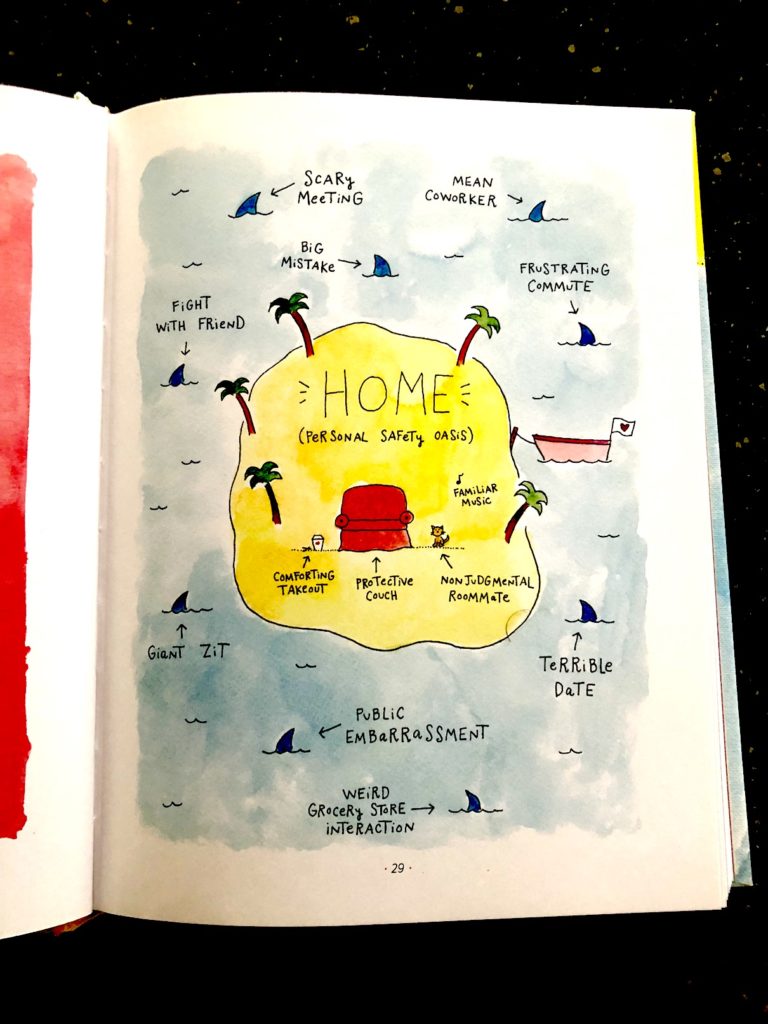 SCARY
MEETING
MEAN
COWORKER
BIG
MISTAKE
FRUSTRATING
COMMUTE
FIGHT
WITH FRIEND
HOME
(PERSONAL SAFETY OASIS)
FAMILIAR
MUSIC
COMFORTING
TAKEOUT
PROTECTIVE
COUCH
NONJUDGMENTAL
ROOMMATE
GIANT ZIT
TERRIBLE
DATE
PUBLIC
EMBARRASSMENT
WEIRD
GROCERY STORE
INTERACTION
· 29 ·